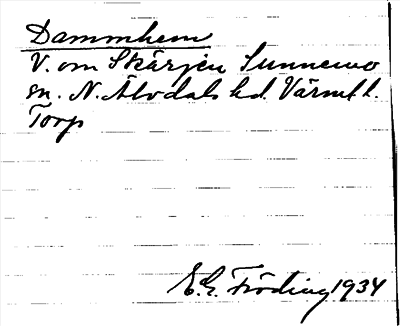 Dammhem
V. om Skärjen Sunnemo
sn. N. Älvdals hd. Värml.
Torp
E.G. Fröding 1934